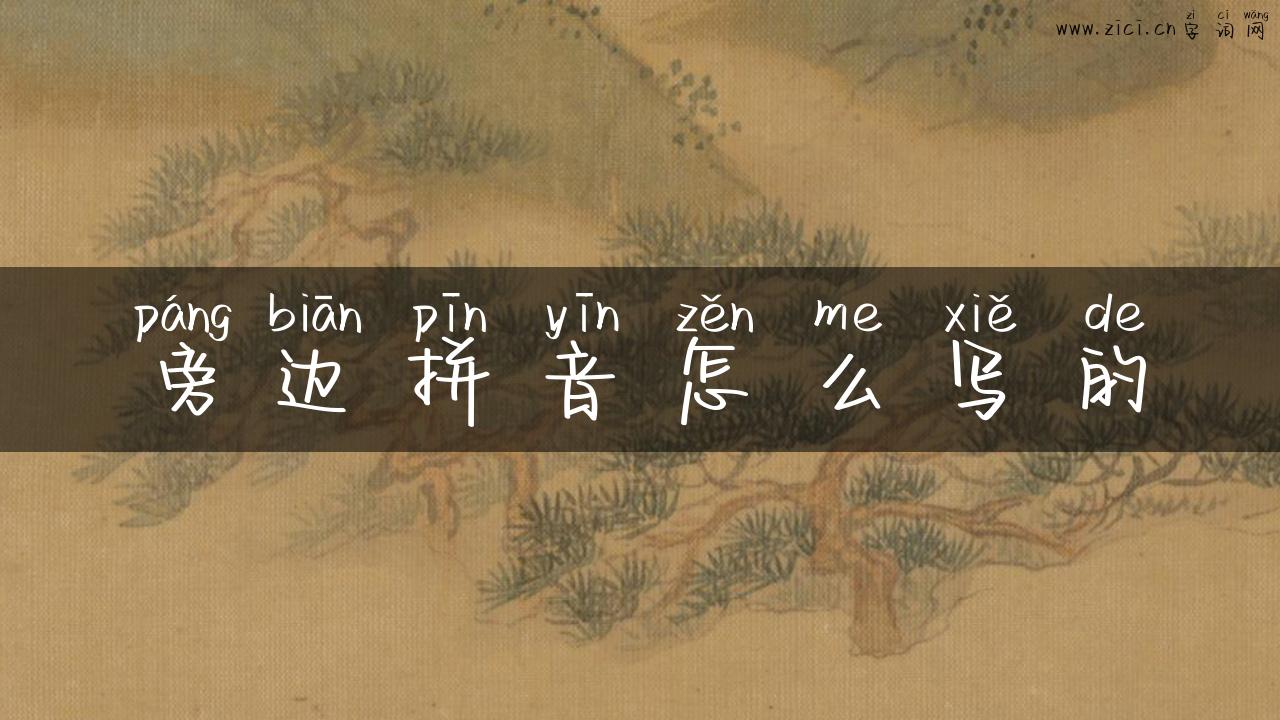 zì cí wǎng
www.zici.cn 字词网
páng biān pīn yīn zěn me xiě de
旁边拼音怎么写的